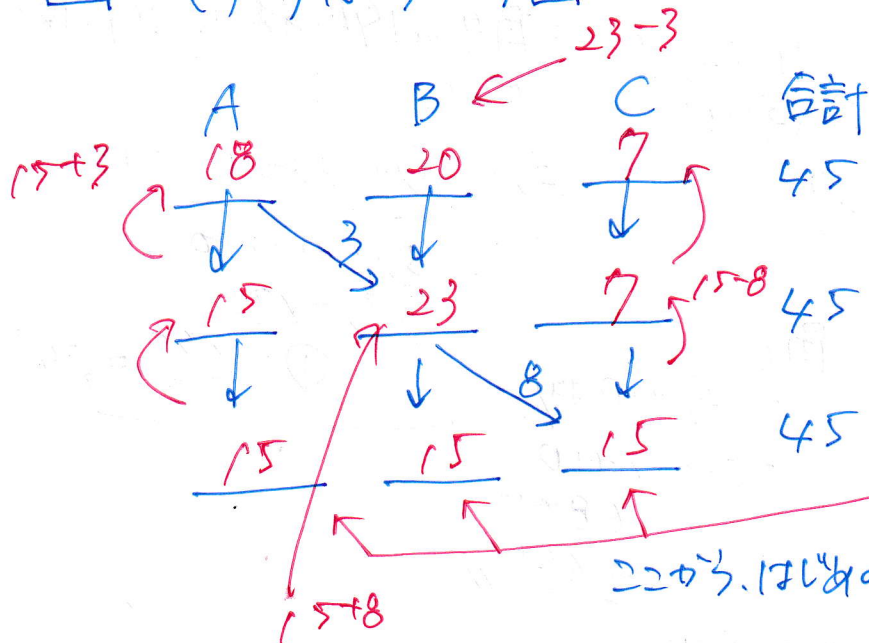 23-3
A B C 合計
15+3 18 20 7 45
3
15 23 7 15-8 45
8
15 15 15 45
ここから、はじめ
15+8